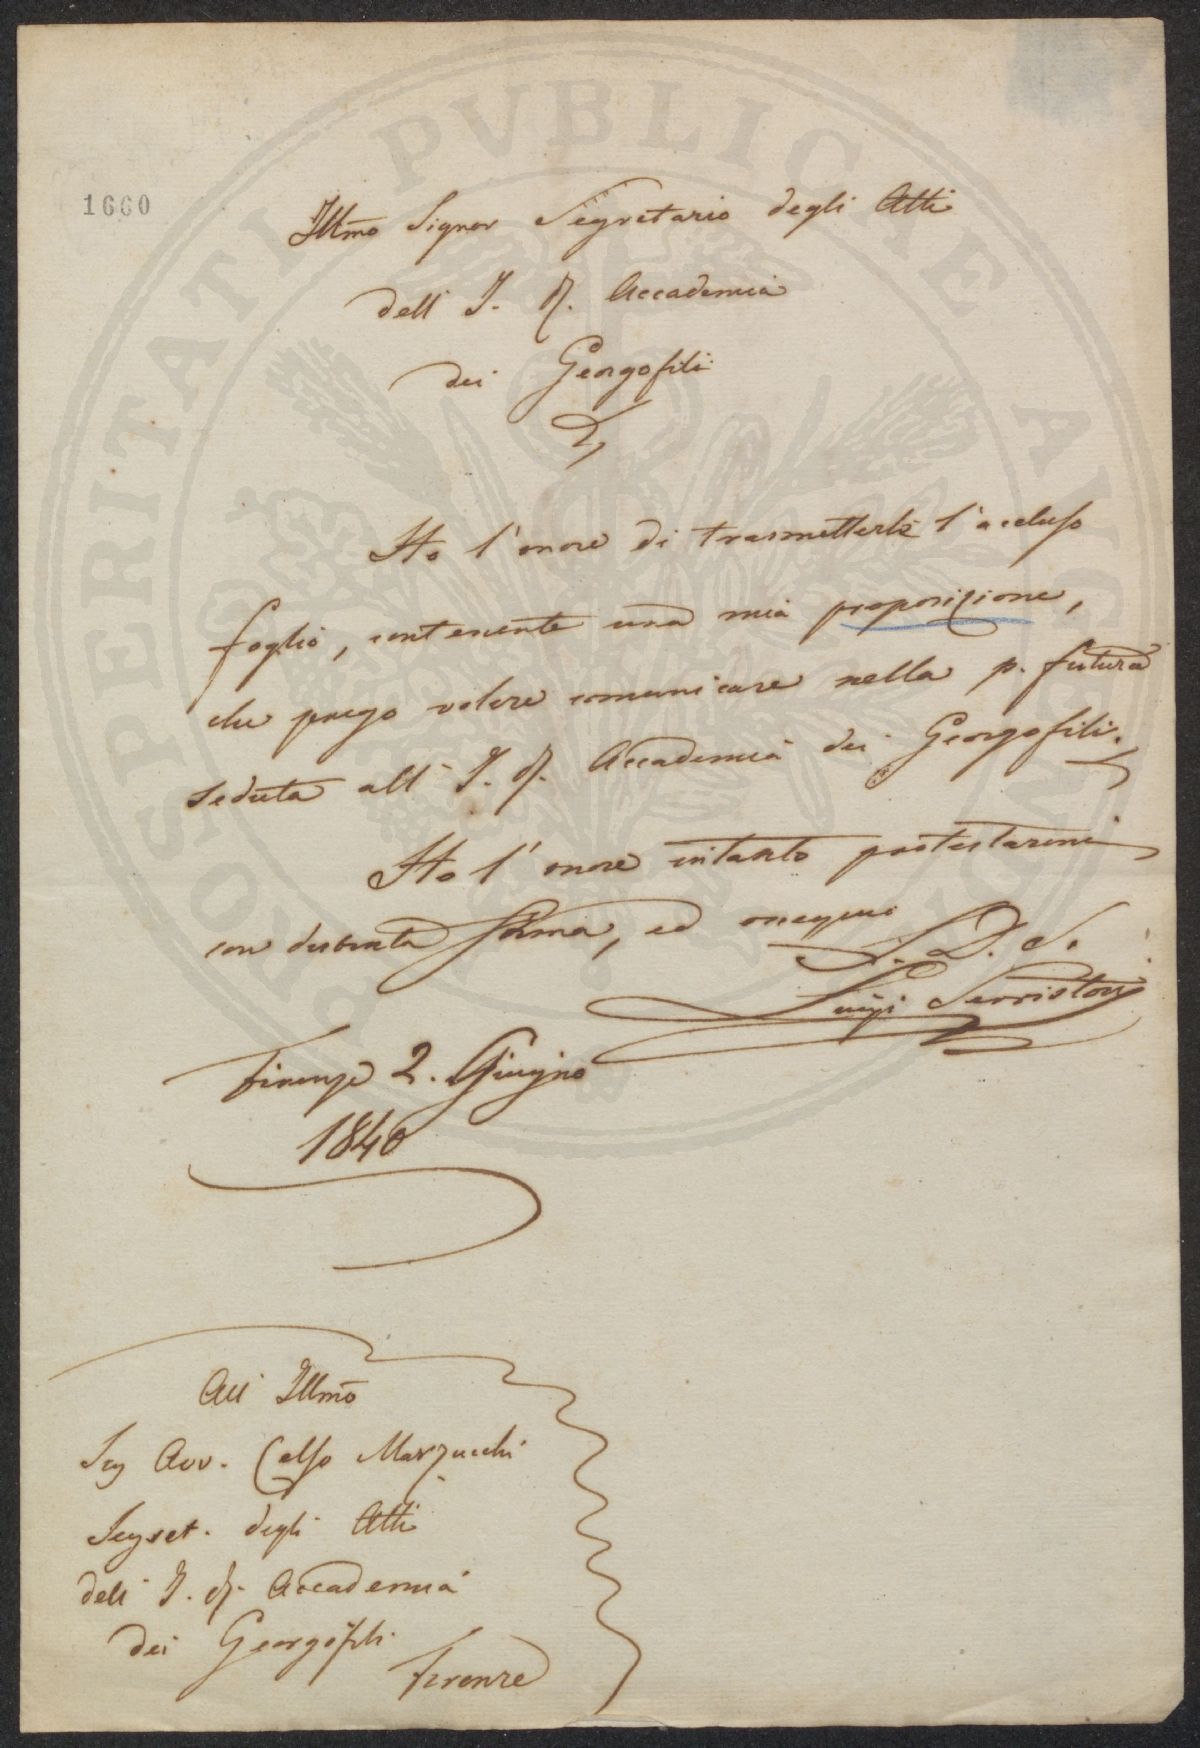 1660
Illmo Signor Segretario degli Atti
dell' I. R. Accademia
dei Georgofili
Ho l'onore di trasmetterle l'accluso
foglio, contenente una mia proposizione,
che prego volere comunicare nella p. futura
seduta all' I. R. Accademia dei Georgofili.
Ho l'onore intanto protestarmi
con distinta stima, ed ossequio
S. D. S.
Luigi Serristori
Firenze 2. Giugno
1840
All' Illmo
Sig Avv. Celso Marzucchi
Segret. degli Atti
dell' I. R. Accademia
dei Georgofili
Firenze
PROSPERITATI PVBLICAE AVGENDAE